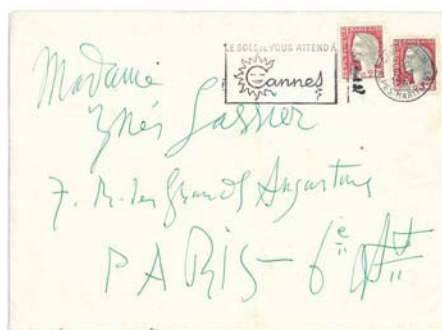 LE SOLEIL VOUS ATTEND À
Cannes
Madame
Inès Sassier
7. R. des Grands Augustins
PARIS - 6e Artt